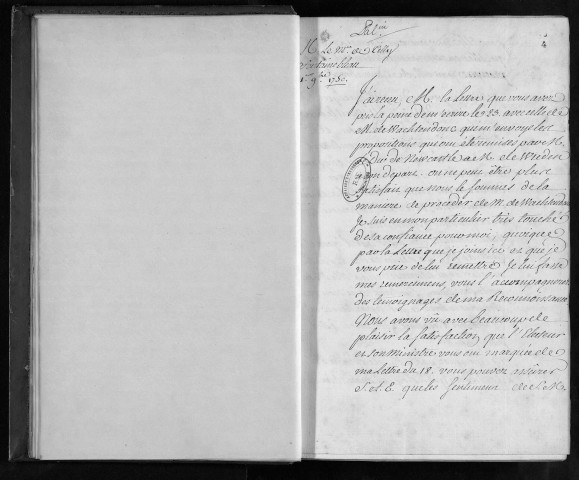 Palin
4
M. Le Mis de Tilly
Fontainebleau
1er 9bre 1750.
J'ai reçu, M. la Lettre que vous avez
pris la peine de m'ecrire le 23. avec celle de
M. de Wachtendonc qui m'envoye les
propositions qui ont été remises par M.
Duc de Newcastle à M. de Wrede
son depart. on ne peut être plus
satisfait que nous le sommes de la
maniere de proceder de M. de Wachtendonc
Je suis en mon particulier très touché
de sa confiance pour moi, quoique
par la Lettre que je joins ici et que je
vous prie de lui remettre Je lui fasse
mes remerciemens, vous l'accompagnerez
des temoignages de ma Reconnoissance
Nous avons vû avec beaucoup de
plaisir la satisfaction que l'Electeur
et son Ministre vous ont marquée de
ma Lettre du 18. vous pouvez assûrer
S. A. E. que les sentimens de S. M.